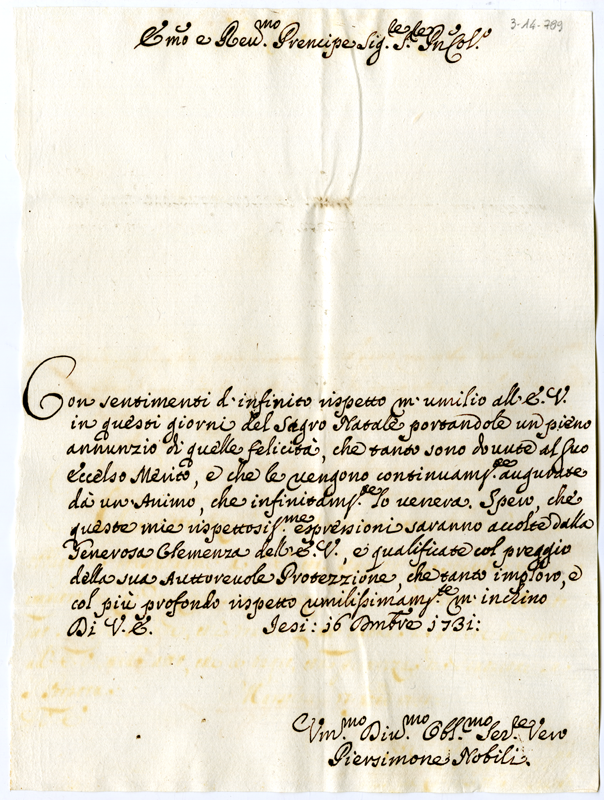 3-14-789
Emo e Reu.mo Prencipe Sig.le P.
Con sentimenti d'infinito rispetto m'umilio all'E.V.
in questi giorni del Sagro Natale portandole un pieno
annunzio di quelle felicità, che tanto sono dovute al suo
eccelso Merito, e che le vengono continuam.te augurate
dà un'Animo, che infinitam.te lo venera. Spero, che
queste mie rispettosiss.me espressioni saranno accolte dalla
Generosa Clemenza dell'E.V., e qualificate col preggio
della sua Auttorevole Protezzione, che tanto imploro, e
col più profondo rispetto umilissimam.te m'inchino
Di V.E. Jesi: 16 Dmbre 1731:
Vm.mo Diu.mo Obl.mo Ser.re Vero
Piersimone Nobili.